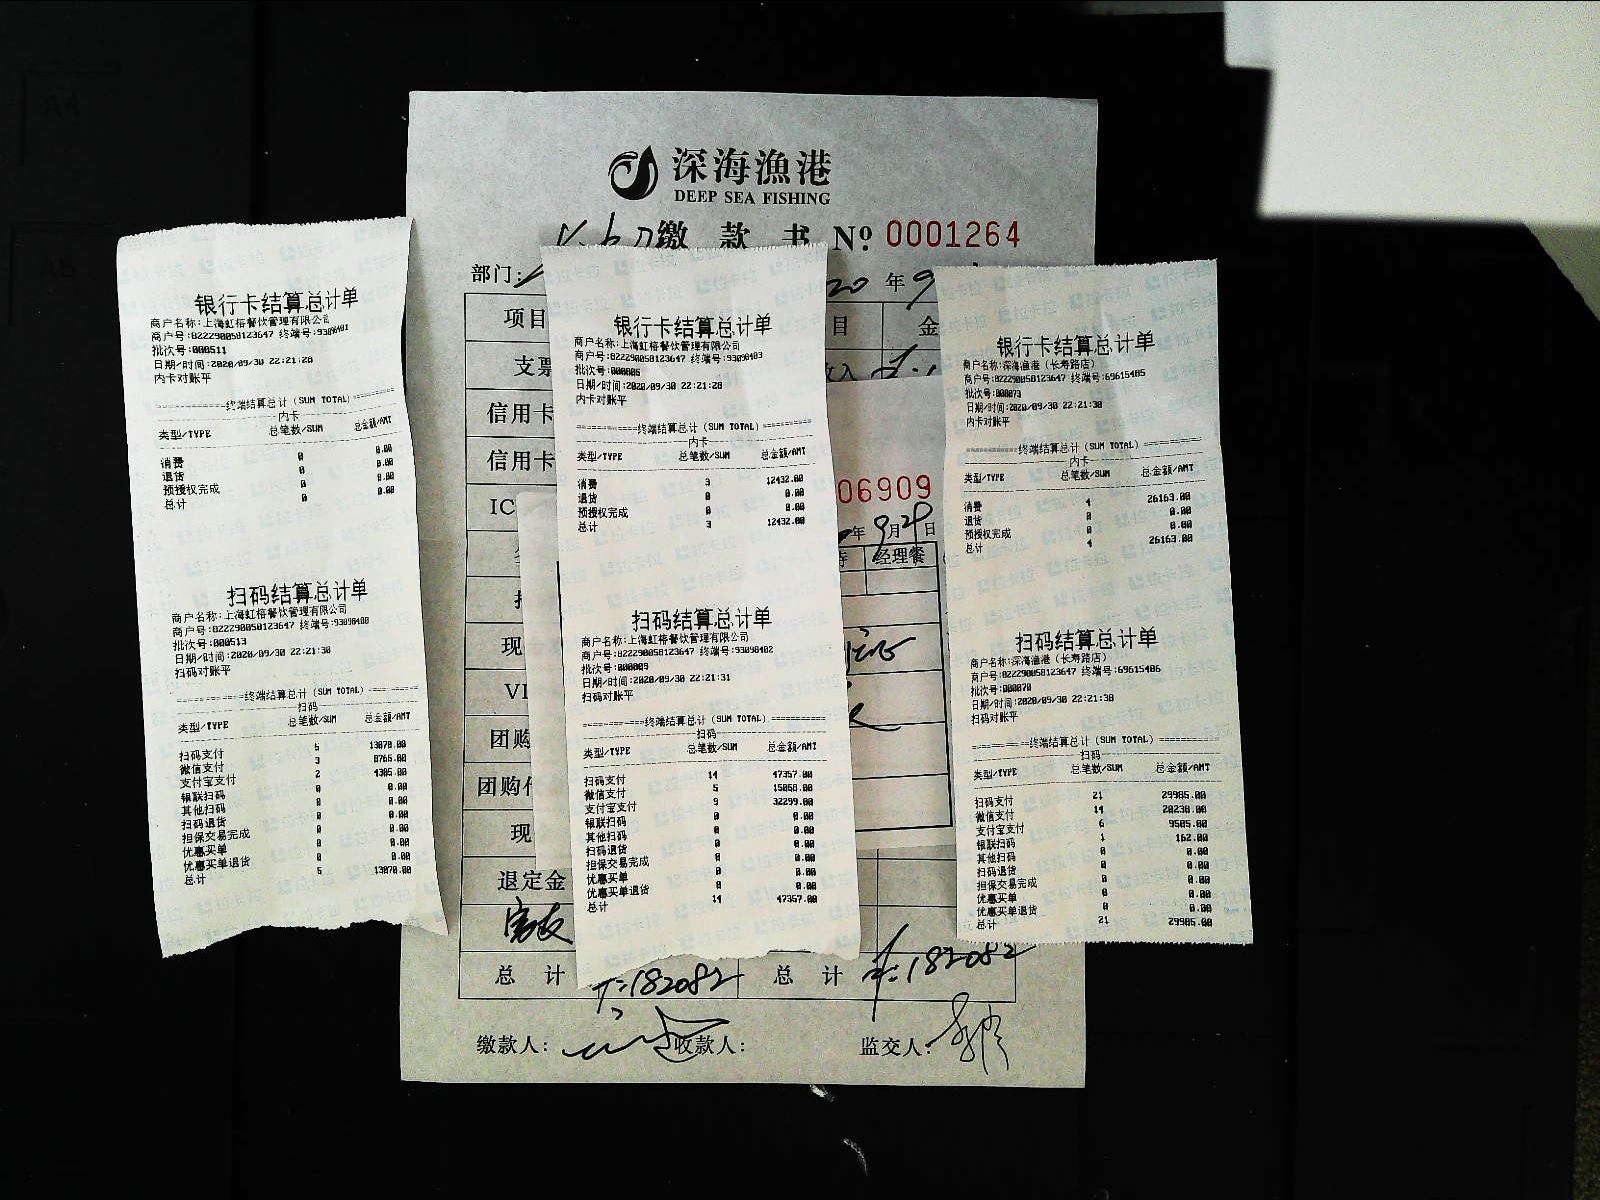 深海漁港
DEEP SEA FISHING
缴 款 书 Nº 0001264
部门:
20 年 9
项目
目 金
支票
收入
信用卡
信用卡
IC
06909
年 9月29日
经理餐
现
VI
团购
团购
现
退定金
总 计 182082 总 计 182082
缴款人: 收款人: 监交人:
银行卡结算总计单
商户名称:上海虹榕餐饮管理有限公司
商户号:822290058123647 终端号:93098401
批次号:000511
日期/时间:2020/09/30 22:21:28
内卡对账平
终端结算总计 (SUM TOTAL)
内卡
类型/TYPE 总笔数/SUM 总金额/AMT
消费 0 0.00
退货 0 0.00
预授权完成 0 0.00
总计 0 0.00
扫码结算总计单
商户名称:上海虹榕餐饮管理有限公司
商户号:822290058123647 终端号:93098400
批次号:000513
日期/时间:2020/09/30 22:21:30
扫码对账平
终端结算总计 (SUM TOTAL)
扫码
类型/TYPE 总笔数/SUM 总金额/AMT
扫码支付 5 13070.00
微信支付 3 8765.00
支付宝支付 2 4305.00
银联扫码 0 0.00
其他扫码 0 0.00
扫码退货 0 0.00
担保交易完成 0 0.00
优惠买单 0 0.00
优惠买单退货 0 0.00
总计 5 13070.00
银行卡结算总计单
商户名称:上海虹榕餐饮管理有限公司
商户号:822290058123647 终端号:93098403
批次号:000006
日期/时间:2020/09/30 22:21:28
内卡对账平
终端结算总计 (SUM TOTAL)
内卡
类型/TYPE 总笔数/SUM 总金额/AMT
消费 3 12432.00
退货 0 0.00
预授权完成 0 0.00
总计 3 12432.00
扫码结算总计单
商户名称:上海虹榕餐饮管理有限公司
商户号:822290058123647 终端号:93098402
批次号:000009
日期/时间:2020/09/30 22:21:31
扫码对账平
终端结算总计 (SUM TOTAL)
扫码
类型/TYPE 总笔数/SUM 总金额/AMT
扫码支付 14 47357.00
微信支付 5 15058.00
支付宝支付 9 32299.00
银联扫码 0 0.00
其他扫码 0 0.00
扫码退货 0 0.00
担保交易完成 0 0.00
优惠买单 0 0.00
优惠买单退货 0 0.00
总计 14 47357.00
银行卡结算总计单
商户名称:深海渔港（长寿路店）
商户号:822290058123647 终端号:69615405
批次号:000073
日期/时间:2020/09/30 22:21:30
内卡对账平
终端结算总计 (SUM TOTAL)
内卡
类型/TYPE 总笔数/SUM 总金额/AMT
消费 4 26163.00
退货 0 0.00
预授权完成 0 0.00
总计 4 26163.00
扫码结算总计单
商户名称:深海渔港（长寿路店）
商户号:822290058123647 终端号:69615406
批次号:000070
日期/时间:2020/09/30 22:21:30
扫码对账平
终端结算总计 (SUM TOTAL)
扫码
类型/TYPE 总笔数/SUM 总金额/AMT
扫码支付 21 29905.00
微信支付 14 20238.00
支付宝支付 6 9505.00
银联扫码 1 162.00
其他扫码 0 0.00
扫码退货 0 0.00
担保交易完成 0 0.00
优惠买单 0 0.00
优惠买单退货 0 0.00
总计 21 29905.00